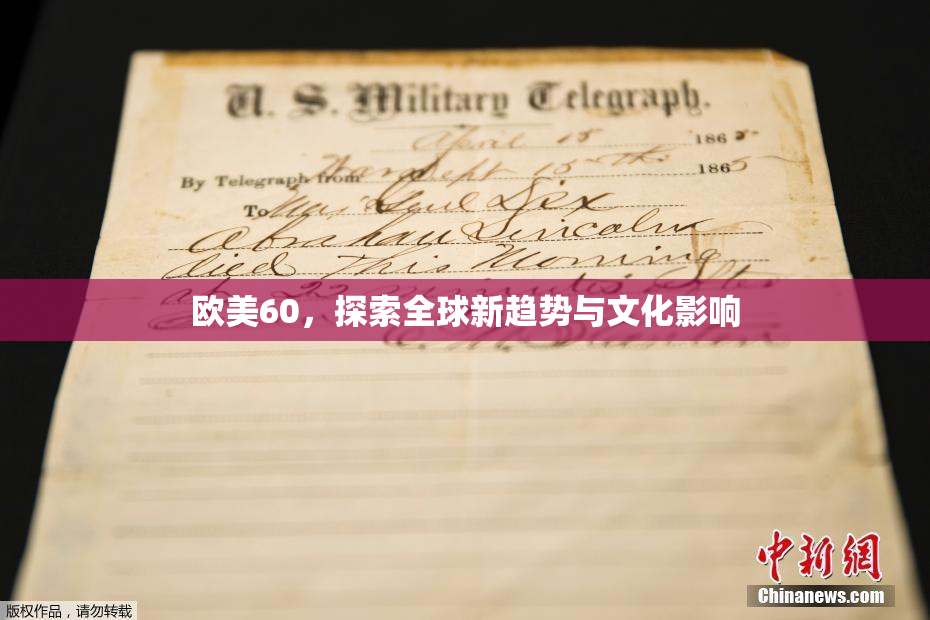 U. S. Military Telegraph.
April 15 1865
By Telegraph from War Dept 15th 1865
To Maj Genl Dix
Abraham Lincoln
died This Morning
at 22 minutes after
欧美60，探索全球新趋势与文化影响
中新网
Chinanews.com
版权作品，请勿转载